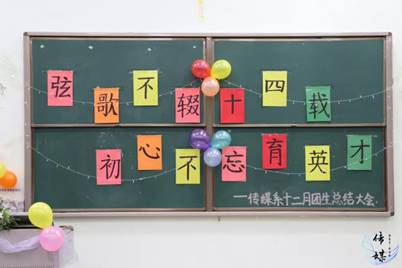 弦歌不辍十四载
初心不忘育英才
一传媒系十二月团生总结大会
传媒